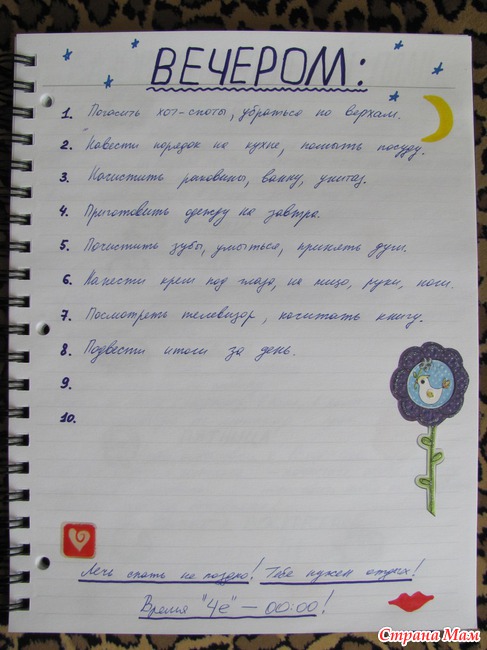 ВЕЧЕРОМ:
1. Погасить хот-споты, убраться по верхам.
2. Навести порядок на кухне, помыть посуду.
3. Почистить раковины, ванну, унитаз.
4. Приготовить одежду на завтра.
5. Почистить зубы, умыться, принять душ.
6. Нанести крем под глаза, на лицо, руки, ноги.
7. Посмотреть телевизор, почитать книгу.
8. Подвести итоги за день.
9.
10.
Лечь спать не поздно! Тебе нужен отдых!
Время "Че" — 00:00!
Страна Мам